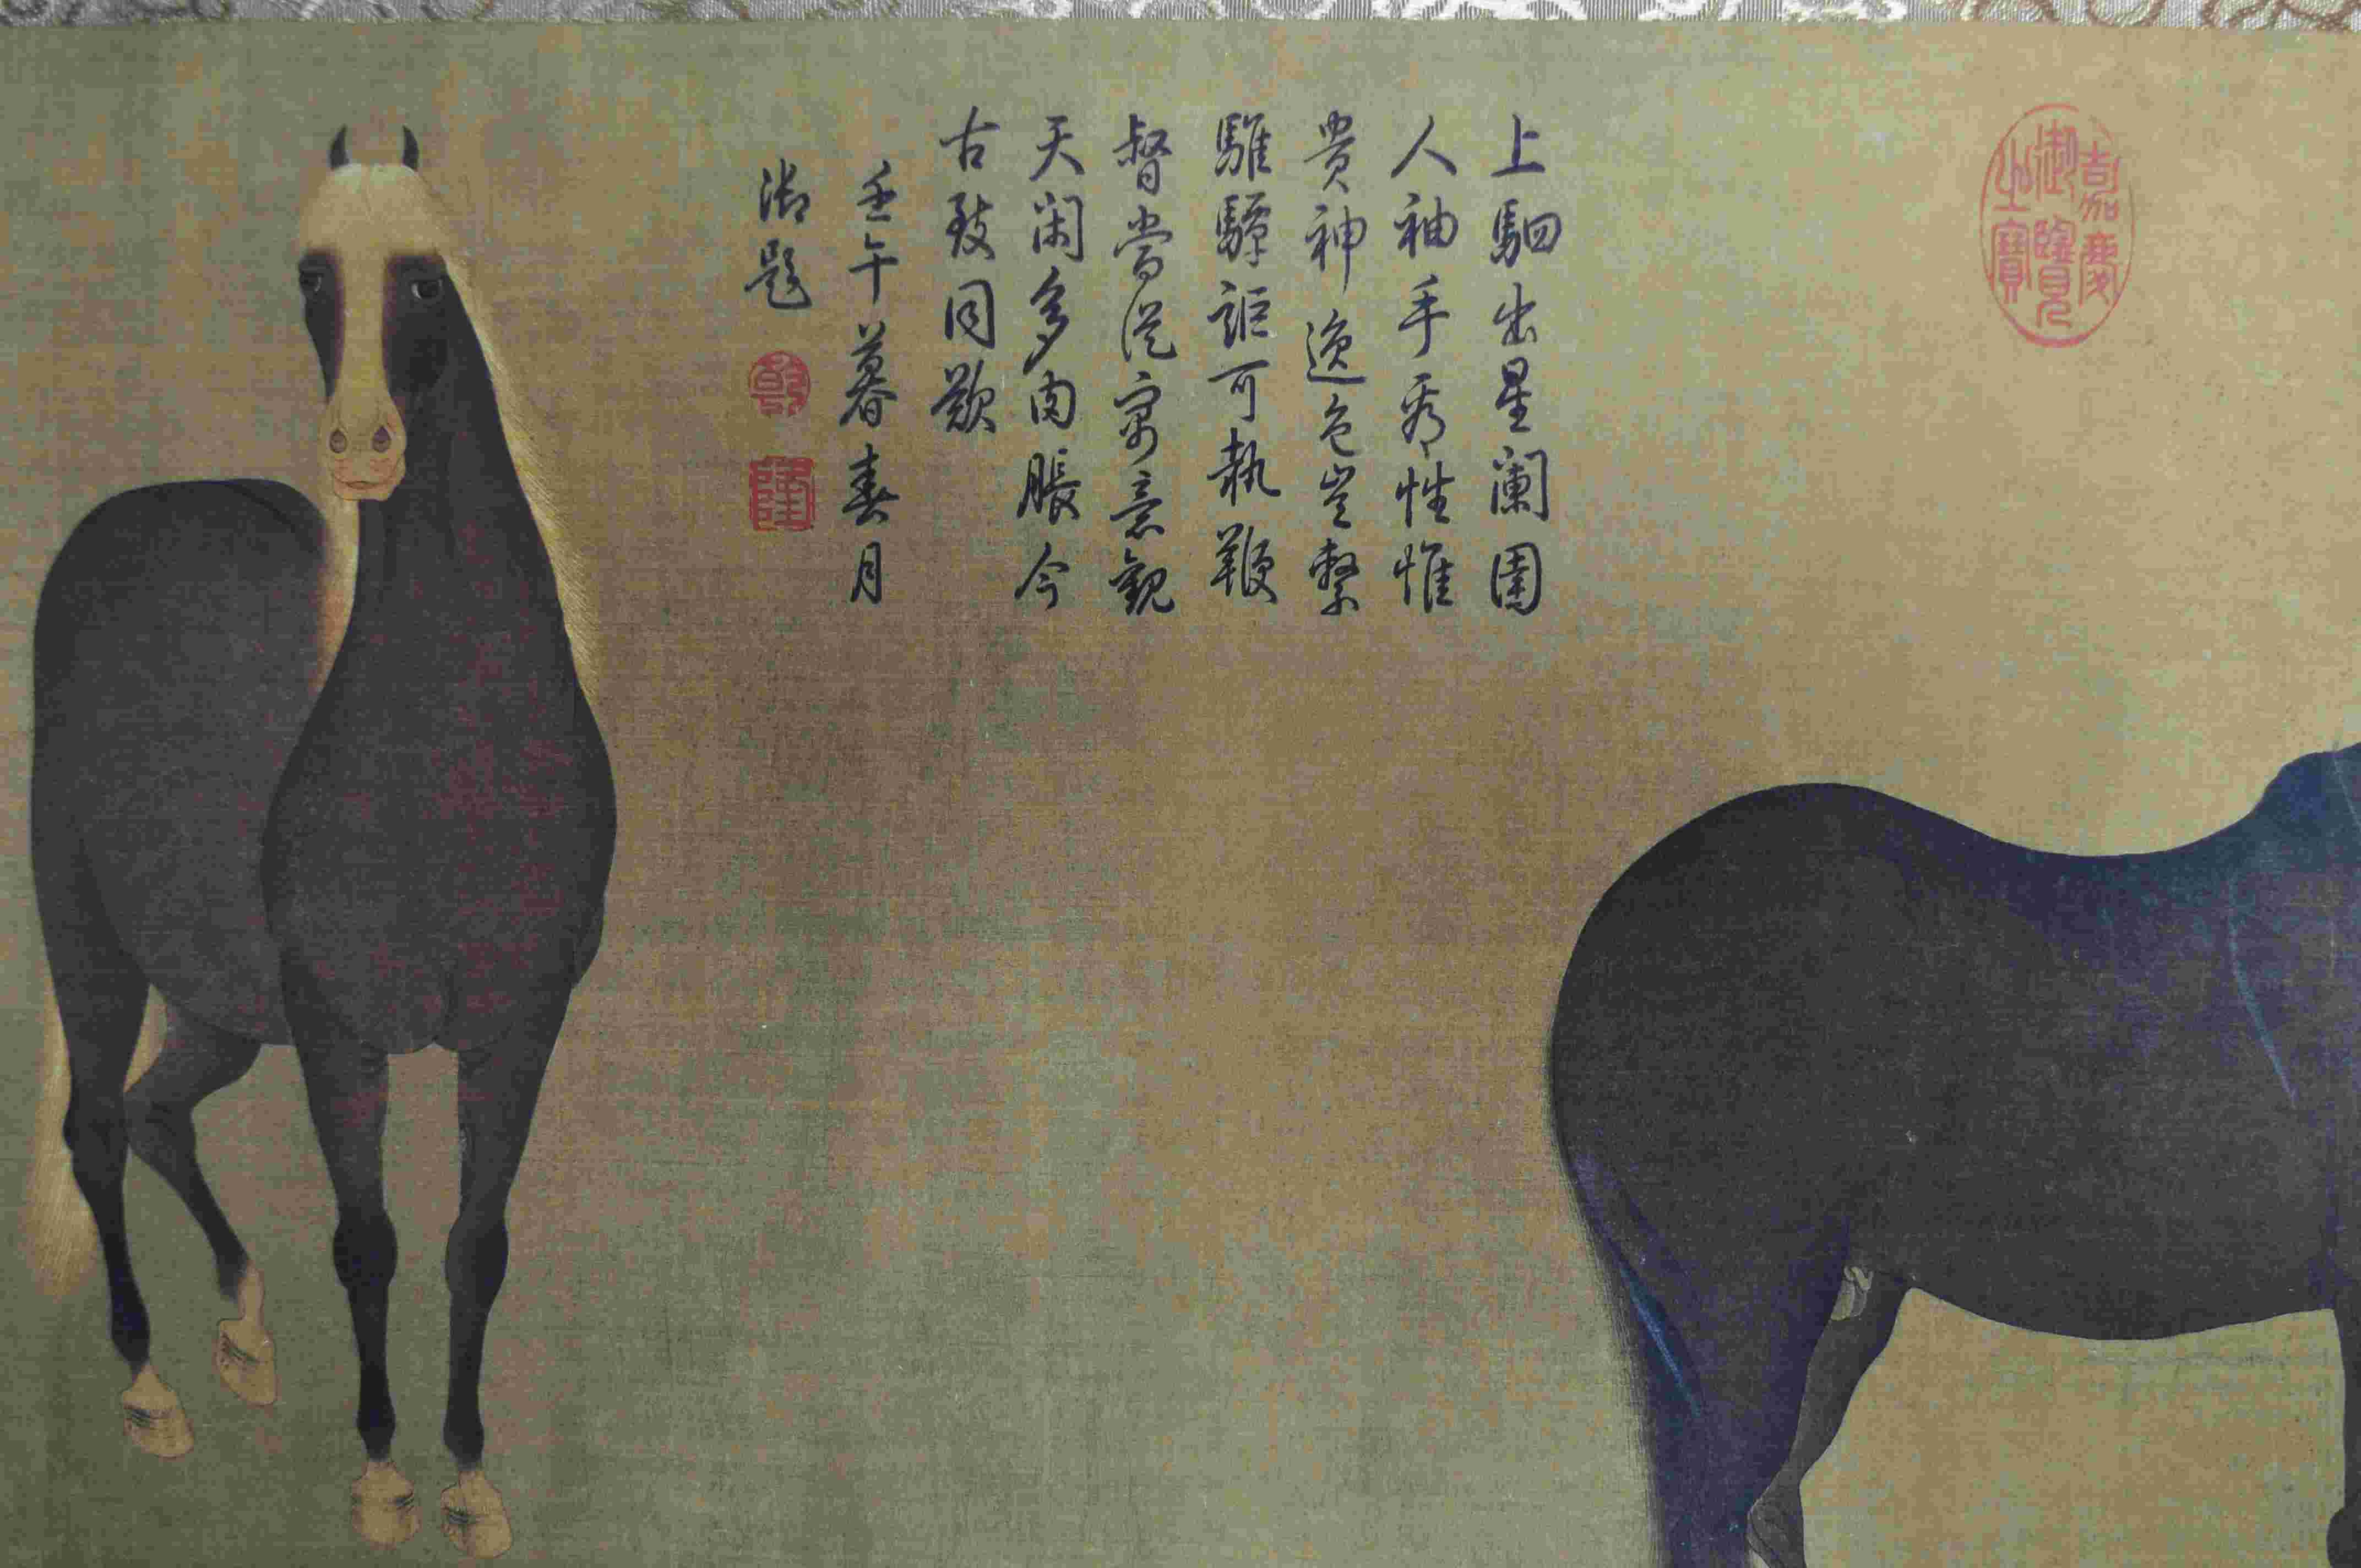 嘉慶
御覽
之寶
上駟出星闌圉
人袖手看性惟
貴神逸色豈繫
騅驒詎可執鞭
督當從寓意觀
天閑多肉脹今
古致同歎
壬午暮春月
御題
乾
隆